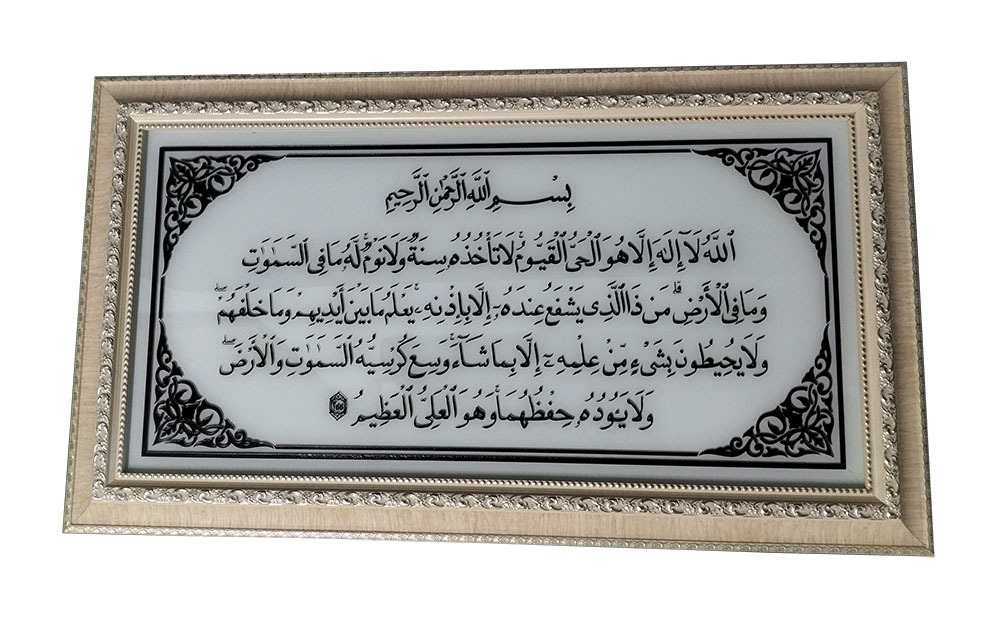 بِسْمِ ٱللَّهِ ٱلرَّحْمَٰنِ ٱلرَّحِيمِ
ٱللَّهُ لَآ إِلَٰهَ إِلَّا هُوَ ٱلْحَىُّ ٱلْقَيُّومُ ۚ لَا تَأْخُذُهُۥ سِنَةٌ وَلَا نَوْمٌ ۚ لَّهُۥ مَا فِى ٱلسَّمَٰوَٰتِ
وَمَا فِى ٱلْأَرْضِ ۗ مَن ذَا ٱلَّذِى يَشْفَعُ عِندَهُۥٓ إِلَّا بِإِذْنِهِۦ ۚ يَعْلَمُ مَا بَيْنَ أَيْدِيهِمْ وَمَا خَلْفَهُمْ ۖ
وَلَا يُحِيطُونَ بِشَىْءٍ مِّنْ عِلْمِهِۦٓ إِلَّا بِمَا شَآءَ ۚ وَسِعَ كُرْسِيُّهُ ٱلسَّمَٰوَٰتِ وَٱلْأَرْضَ ۖ
وَلَا يَـُٔودُهُۥ حِفْظُهُمَا ۚ وَهُوَ ٱلْعَلِىُّ ٱلْعَظِيمُ